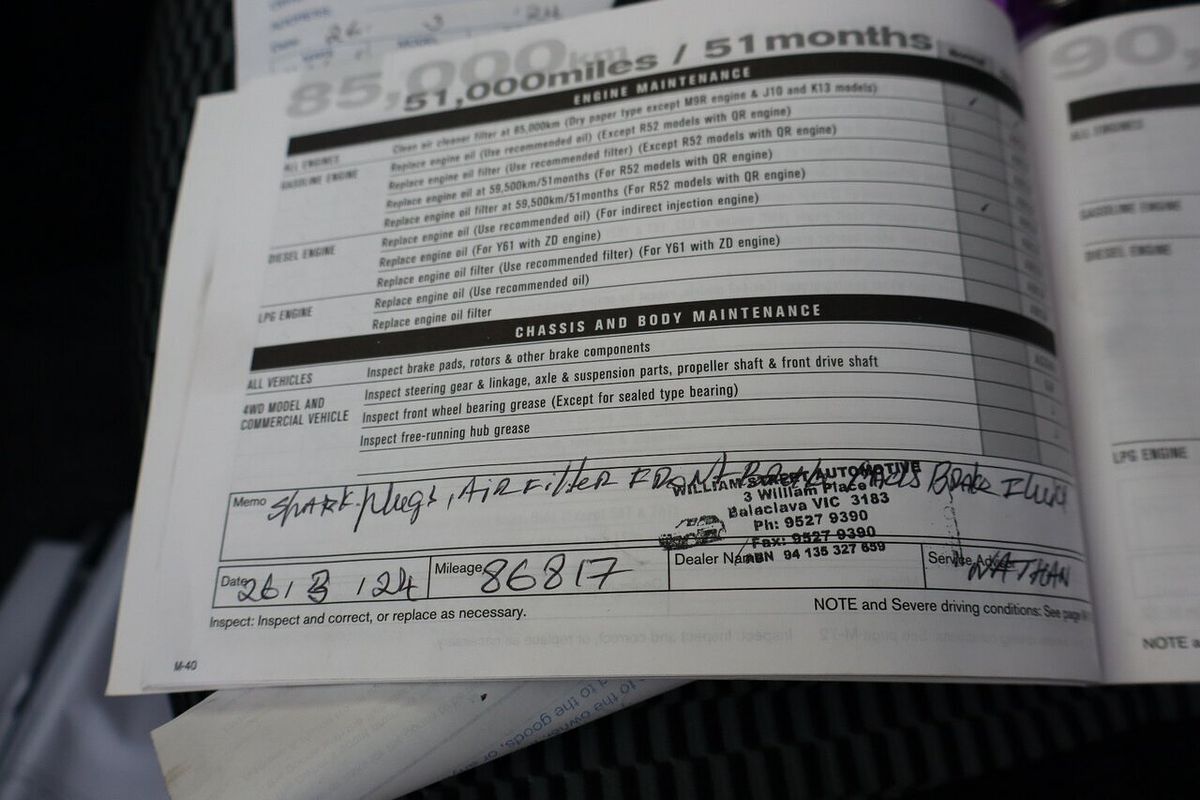 26 3 24
85,000km
51,000miles / 51months
ENGINE MAINTENANCE
ALL ENGINES Clean air cleaner filter at 85,000km (Dry paper type except M9R engine & J10 and K13 models)
GASOLINE ENGINE Replace engine oil (Use recommended oil) (Except R52 models with QR engine)
Replace engine oil filter (Use recommended filter) (Except R52 models with QR engine)
Replace engine oil at 59,500km/51months (For R52 models with QR engine)
Replace engine oil filter at 59,500km/51months (For R52 models with QR engine)
DIESEL ENGINE Replace engine oil (Use recommended oil) (For indirect injection engine)
Replace engine oil (For Y61 with ZD engine)
Replace engine oil filter (Use recommended filter) (For Y61 with ZD engine)
LPG ENGINE Replace engine oil (Use recommended oil)
Replace engine oil filter
CHASSIS AND BODY MAINTENANCE
ALL VEHICLES Inspect brake pads, rotors & other brake components
4WD MODEL AND COMMERCIAL VEHICLE Inspect steering gear & linkage, axle & suspension parts, propeller shaft & front drive shaft
Inspect front wheel bearing grease (Except for sealed type bearing)
Inspect free-running hub grease
Memo SPARK plugs, AIR Filter FRONT BRAKE PADS BRAKE Fluid
WILLIAM STREET AUTOMOTIVE
3 William Place
Balaclava VIC 3183
Ph: 9527 9390
Fax: 9527 9390
ABN 94 135 327 659
Date 26 / 3 / 24 Mileage 86817 Dealer Name Service Adviser NATHAN
Inspect: Inspect and correct, or replace as necessary.
NOTE and Severe driving conditions: See page
M-40
90,
ALL ENGINES
GASOLINE ENGINE
DIESEL ENGINE
LPG ENGINE
NOTE
to the owner
to the goods, or